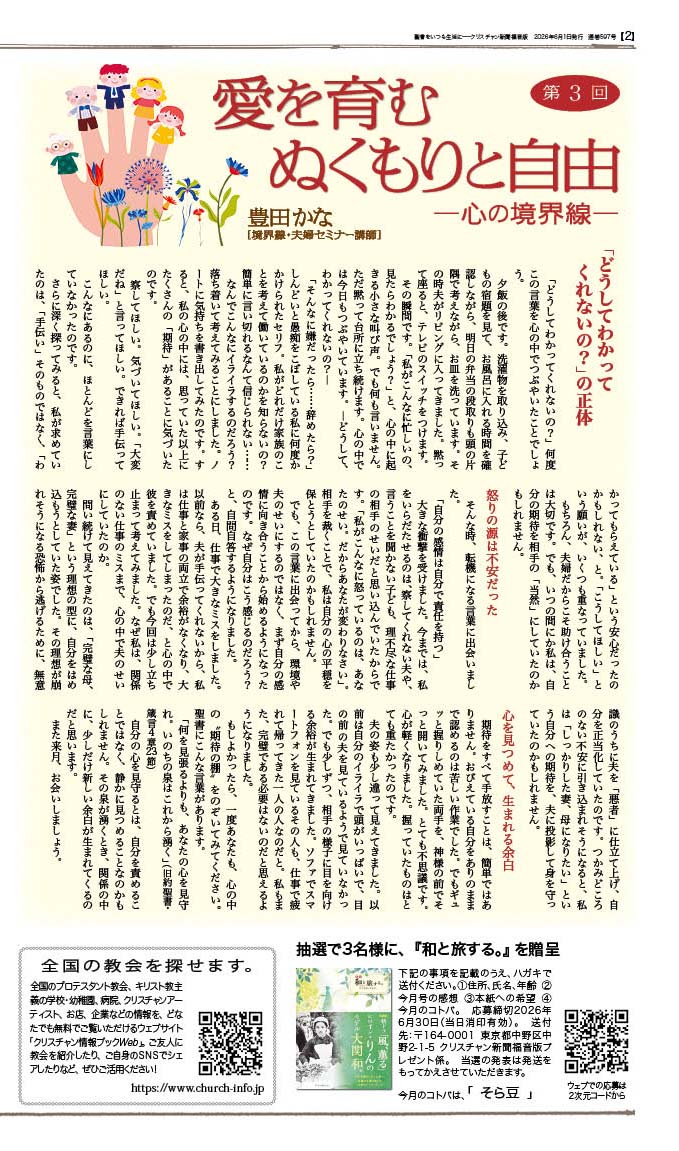 聖書をいつも生活に──クリスチャン新聞福音版　2026年6月1日発行　通巻597号　【2】
愛を育む
ぬくもりと自由
―心の境界線―
第３回
豊田かな
［境界線・夫婦セミナー講師］
「どうしてわかって
くれないの？」の正体
「どうしてわかってくれないの？」何度
この言葉を心の中でつぶやいたことでしょ
う。
夕飯の後です。洗濯物を取り込み、子ど
もの宿題を見て、お風呂に入れる時間を確
認しながら、明日の弁当の段取りも頭の片
隅で考えながら、お皿を洗っています。そ
の時夫がリビングに入ってきました。黙っ
て座ると、テレビのスイッチをつけます。
その瞬間です。「私がこんなに忙しいの、
見たらわかるでしょう？」と、心の中に起
きる小さな叫び声。でも何も言いません。
ただ黙って台所に立ち続けます。心の中で
は今日もつぶやいています。―どうして、
わかってくれないの？―
「そんなに嫌だったら……辞めたら？」
しんどいと愚痴をこぼしている私に何度か
かけられたセリフ。私がどれだけ家族のこ
とを考えて働いているのかを知らないの？
簡単に言い切れるなんて信じられない……
なんでこんなにイライラするのだろう？
落ち着いて考えてみることにしました。ノ
ートに気持ちを書き出してみたのです。す
ると、私の心の中には、思っていた以上に
たくさんの「期待」があることに気づいた
のです。
察してほしい。気づいてほしい。「大変
だね」と言ってほしい。できれば手伝って
ほしい。
こんなにあるのに、ほとんどを言葉にし
ていなかったのです。
さらに深く探ってみると、私が求めてい
たのは、「手伝い」そのものではなく、「わ
かってもらえている」という安心だったの
かもしれない、と。「こうしてほしい」と
いう願いが、いくつも重なっていました。
もちろん、夫婦だからこそ助け合うこと
は大切です。でも、いつの間にか私は、自
分の期待を相手の「当然」にしていたのか
もしれません。
怒りの源は不安だった
そんな時、転機になる言葉に出会いまし
た。
「自分の感情は自分で責任を持つ」
大きな衝撃を受けました。今までは、私
をいらだたせるのは、察してくれない夫や、
言うことを聞かない子ども、理不尽な仕事
の相手のせいだと思い込んでいたからで
す。「私がこんなに怒っているのは、あな
たのせい。だからあなたが変わりなさい」。
相手を裁くことで、私は自分の心の平穏を
保とうとしていたのかもしれません。
でも、この言葉に出会ってから、環境や
夫のせいにするのではなく、まず自分の感
情に向き合うことから始めるようになった
のです。なぜ自分はこう感じるのだろう？
と、自問自答するようになりました。
ある日、仕事で大きなミスをしました。
以前なら、夫が手伝ってくれないから、私
は仕事と家事の両立で余裕がなくなり、大
きなミスをしてしまったのだ、と心の中で
彼を責めていました。でも今回は少し立ち
止まって考えてみました。なぜ私は、関係
のない仕事のミスまで、心の中で夫のせい
にしていたのか。
問い続けて見えてきたのは、「完璧な母、
完璧な妻」という理想の型に、自分をはめ
込もうとしていた姿でした。その理想が崩
れそうになる恐怖から逃げるために、無意
識のうちに夫を「悪者」に仕立て上げ、自
分を正当化していたのです。つかみどころ
のない不安に引き込まれそうになると、私
は「しっかりした妻、母になりたい」とい
う自分への期待を、夫に投影して身を守っ
ていたのかもしれません。
心を見つめて、生まれる余白
期待をすべて手放すことは、簡単ではあ
りません。おびえている自分をありのまま
で認めるのは苦しい作業でした。でもギュ
ッと握りしめていた両手を、神様の前でそ
っと開いてみました。とても不思議です。
心が軽くなりました。握っていたものはと
ても重たかったのです。
夫の姿も少し違って見えてきました。以
前は自分のイライラで頭がいっぱいで、目
の前の夫を見ているようで見ていなかっ
た。でも少しずつ、相手の様子に目を向け
る余裕が生まれてきました。ソファでスマ
ートフォンを見ているその人も、仕事で疲
れて帰ってきた一人の人なのだと。私もま
た、完璧である必要はないのだと思えるよ
うになりました。
もしよかったら、一度あなたも、心の中
の〝期待の棚〟をのぞいてみてください。
聖書にこんな言葉があります。
「何を見張るよりも、あなたの心を見守
れ。いのちの泉はこれから湧く」（旧約聖書・
箴言4章23節）
自分の心を見守るとは、自分を責めるこ
とではなく、静かに見つめることなのかも
しれません。その泉が湧くとき、関係の中
に、少しだけ新しい余白が生まれてくるの
だと思います。
また来月、お会いしましょう。
全国の教会を探せます。
全国のプロテスタント教会、キリスト教主
義の学校・幼稚園、病院、クリスチャンアー
ティスト、お店、企業などの情報を、どな
たでも無料でご覧いただけるウェブサイト
「クリスチャン情報ブックWeb」。ご友人に
教会を紹介したり、ご自身のSNSでシェ
アしたりなど、ぜひご活用ください！
https://www.church-info.jp
抽選で3名様に、『和と旅する。』を贈呈
下記の事項を記載のうえ、ハガキで
送付ください。①住所、氏名、年齢　②
今月号の感想　③本紙への希望　④
今月のコトバ。　応募締切2026年
6月30日（当日消印有効）。　送付
先：〒164-0001　東京都中野区中
野2-1-5　クリスチャン新聞福音版プ
レゼント係。　当選の発表は発送を
もってかえさせていただきます。
今月のコトバは、「　そら豆　」
ウェブでの応募は
2次元コードから